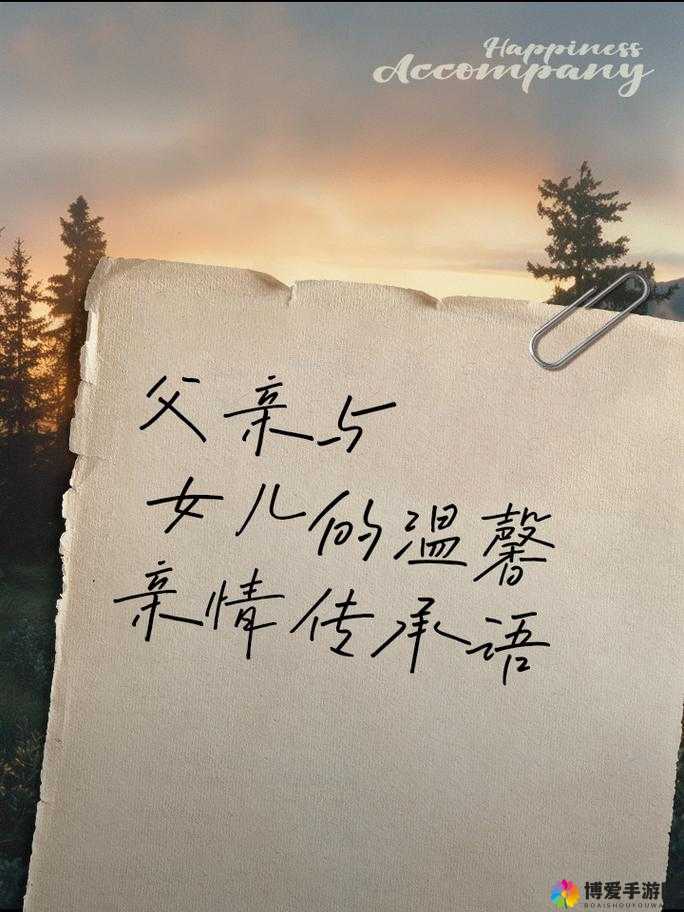 Happiness
Accompany
父亲与
女儿的温馨
亲情传承语
博爱手游网
BOAISHOUYOUWA